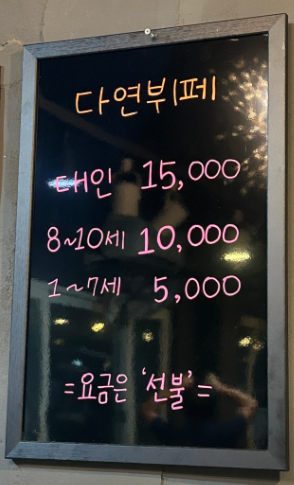 다연뷔페
대인 15,000
8~10세 10,000
1~7세 5,000
=요금은 '선불'=